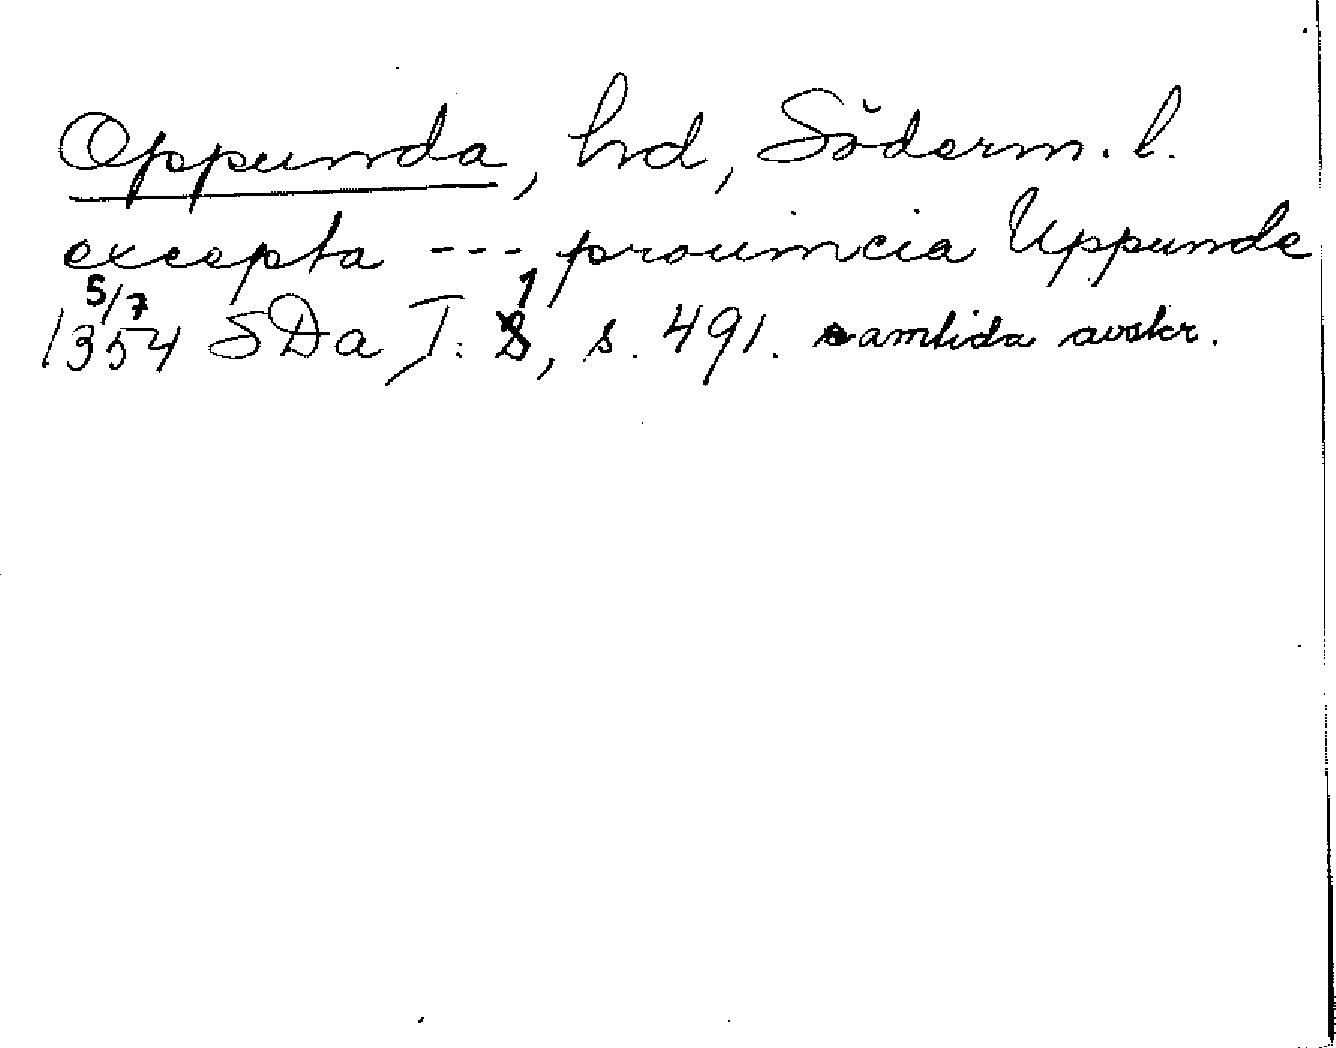 Oppunda, hd, Söderm. l.
excepta --- prouincia Uppunde
1354 5/7 SDa I: 1, s. 491. samtida avskr.